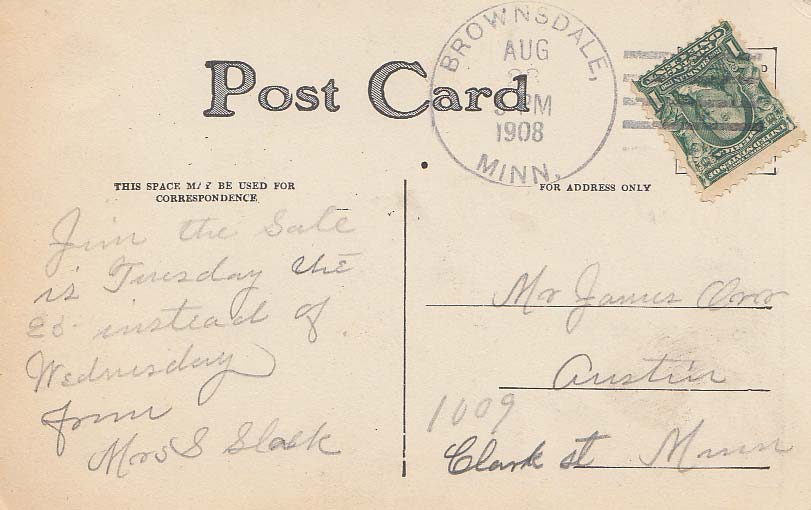 Post Card
BROWNSDALE,
AUG
PM
1908
MINN.
THIS SPACE MAY BE USED FOR
CORRESPONDENCE
FOR ADDRESS ONLY
Jim the Sale
is Tuesday the
25 instead of
Wednesday
from
Mrs S Slack
Mr James Orr
Austin
1009
Clark st Minn